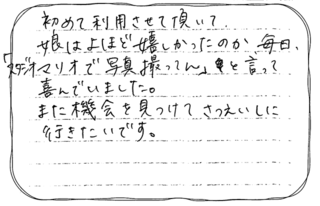 初めて利用させて頂いて、
娘はよほど嬉しかったのか 毎日、
「スタジオマリオで写真撮ってん」と言って
喜んでいました。
また機会を見つけて さつえいしに
行きたいです。